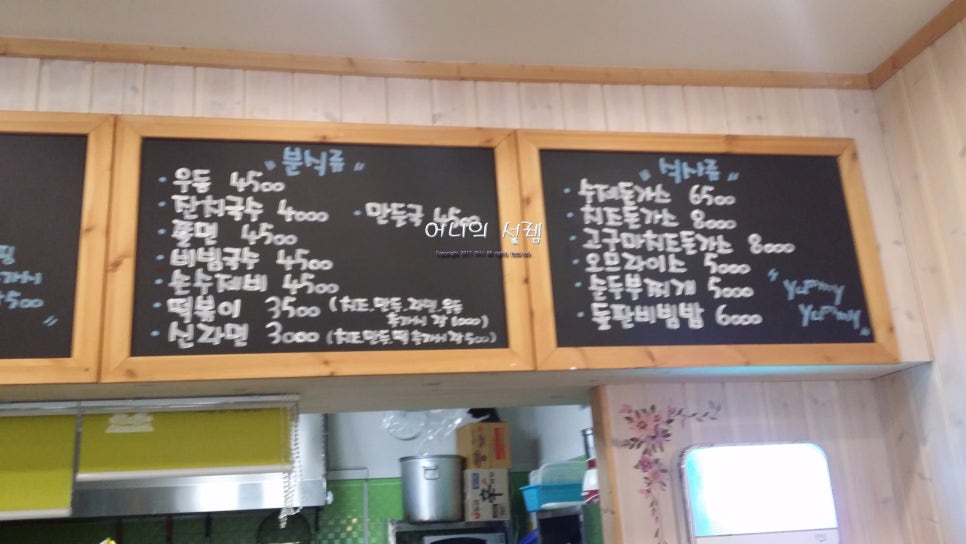 " 분식류 "
· 우동 4500
· 잔치국수 4000 · 만두국 4500
· 쫄면 4500
· 비빔국수 4500
· 손수제비 4500
· 떡볶이 3500 (치즈.만두.라면.우동
추가시 각 1000)
· 신라면 3000 (치즈.만두.떡 추가시 각 500)
" 식사류 "
· 수제돈가스 6500
· 치즈돈가스 8000
· 고구마치즈돈가스 8000
· 오므라이스 5000
· 순두부찌개 5000
· 돌판비빔밥 6000
" Yummy
Yummy "
가시
각 500
"